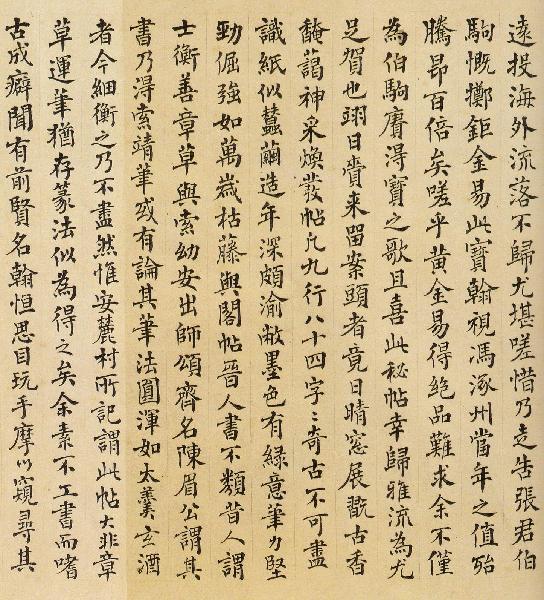 遠投海外流落不歸尤堪嗟惜乃走告張君伯
駒慨擲鉅金易此寶翰視馮涿州當年之值殆
騰昂百倍矣嗟乎黃金易得絕品難求余不僅
為伯駒賡得寶之歌且喜此秘帖幸歸雅流為尤
足賀也翊日賫来留案頭者竟日晴窗展翫古香
馣藹神采煥發帖凡九行八十四字〻奇古不可盡
識紙似蠶繭造年深頗渝敝墨色有綠意筆力堅
勁倔強如萬歲枯藤與閣帖晉人書不類昔人謂
士衡善章草與索幼安出師頌齊名陳眉公謂其
書乃得索靖筆或有論其筆法圓渾如太羹玄酒
者今細衡之乃不盡然惟安麓村所記謂此帖大非章
草運筆猶存篆法似為得之矣余素不工書而嗜
古成癖聞有前賢名翰恒思目玩手摩以窺尋其